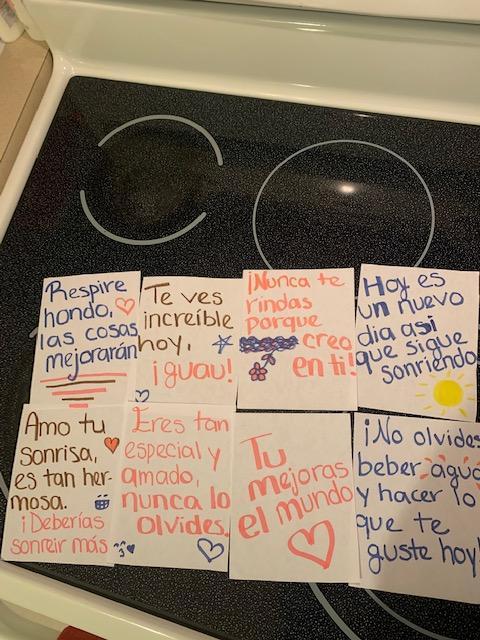 Respire
hondo,
las cosas
mejorarán
Te ves
increíble
hoy,
¡guau!
¡Nunca te
rindas
porque
creo
en ti!
Hoy es
un nuevo
dia asi
que sigue
sonriendo
Amo tu
sonrisa,
es tan her-
mosa.
¡Deberías
sonreir más
Eres tan
especial y
amado,
nunca lo
olvides.
Tu
mejoras
el mundo
¡No olvides
beber agua
y hacer lo
que te
guste hoy!